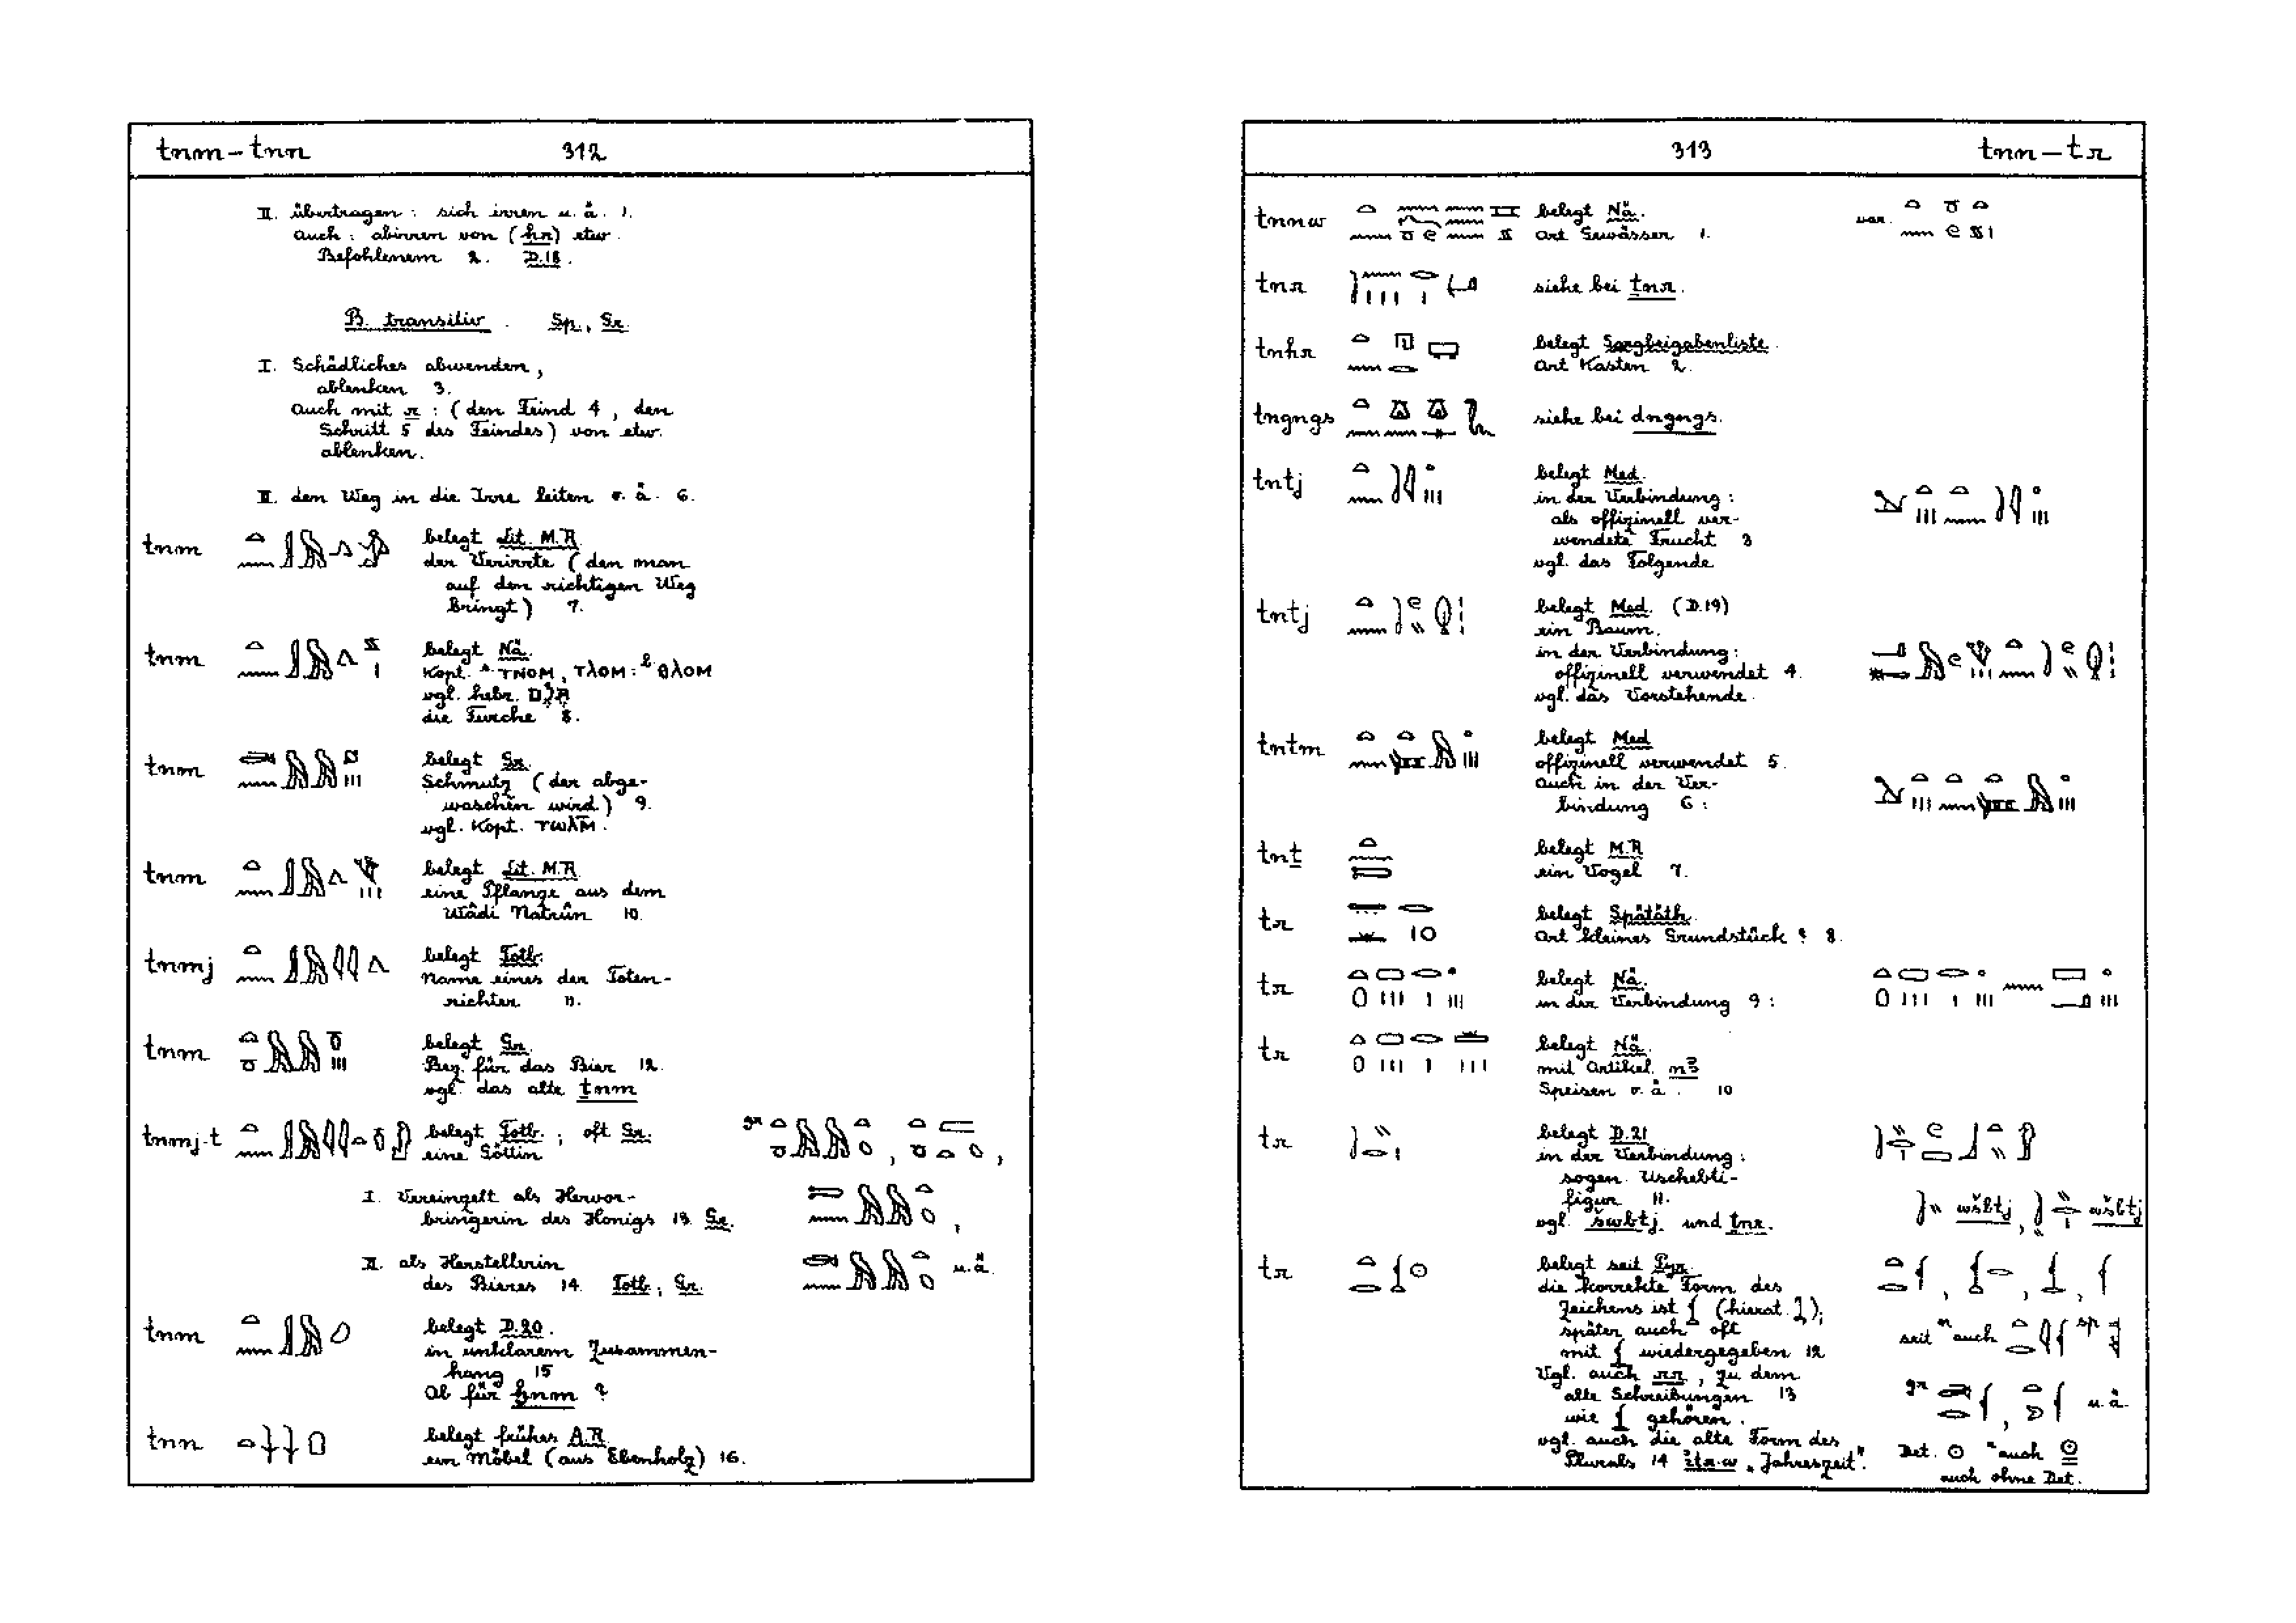 tnm – tnn 312
II. übertragen: sich irren u. ä. 1.
Auch: abirren von (ḥr) etw.
Befohlenem 2. D.18.
B. transitiv. Sp., Gr.
I. Schädliches abwenden,
ablenken 3.
Auch mit r: (den Feind 4, den
Schritt 5 des Feindes) von etw.
ablenken.
II. den Weg in die Irre leiten o. ä. 6.
tnm belegt Lit. M.R.
der Verirrte (den man
auf den richtigen Weg
bringt) 7.
tnm belegt Nä.
Kopt. ⲧⲛⲟⲙ, ⲧⲗⲟⲙ: ⲑⲗⲟⲙ
vgl. hebr.
die Furche 8.
tnm belegt Gr.
Schmutz (der abge-
waschen wird) 9.
vgl. Kopt. ⲧⲱⲗⲙ̄.
tnm belegt Lit. M.R.
eine Pflanze aus dem
Wâdi Natrûn 10.
tnmj belegt Totb.
Name eines der Toten-
richter 11.
tnm belegt Gr.
Bez. für das Bier 12.
vgl. das alte ṯnm
tnmj.t belegt Totb.; oft Gr.
eine Göttin
I. Vereinzelt als Hervor-
bringerin des Honigs 13. Gr.
II. als Herstellerin
des Bieres 14. Totb.; Gr. u.ä.
tnm belegt D.20.
in unklarem Zusammen-
hang 15
Ob für ẖnm ?
tnn belegt frühes A.R.
ein Möbel (aus Ebenholz) 16.
313 tnn – tr
tnnw belegt Nä. var.
Art Gewässer 1.
tnr siehe bei ṯnr.
tnhr belegt Sargbeigabenliste.
Art Kasten 2.
tngngs siehe bei dngngs.
tntj belegt Med.
in der Verbindung:
als offizinell ver-
wendete Frucht 3
vgl. das Folgende
tntj belegt Med. (D.19)
ein Baum.
in der Verbindung:
offizinell verwendet 4.
vgl. das Vorstehende.
tntm belegt Med.
offizinell verwendet 5.
Auch in der Ver-
bindung 6:
tnṯ belegt M.R.
ein Vogel 7.
tr belegt Spätäth.
Art kleines Grundstück? 8.
tr belegt Nä.
in der Verbindung 9:
tr belegt Nä.
mit Artikel nꜣ
Speisen o. ä. 10
tr belegt D.21
in der Verbindung:
sogen. Uschebti-
figur 11.
vgl. šwbtj und tnr. wšbtj, wšbtj
tr belegt seit Pyr.
die korrekte Form des
Zeichens ist (hierat. );
später auch oft
mit wiedergegeben 12
seit auch sp
Vgl. auch rr, zu dem
alte Schreibungen 13
wie gehören.
gr u. ä.
vgl. auch die alte Form des
Plurals 14 ỉtr.w „Jahreszeit“.
Det. auch
auch ohne Det.